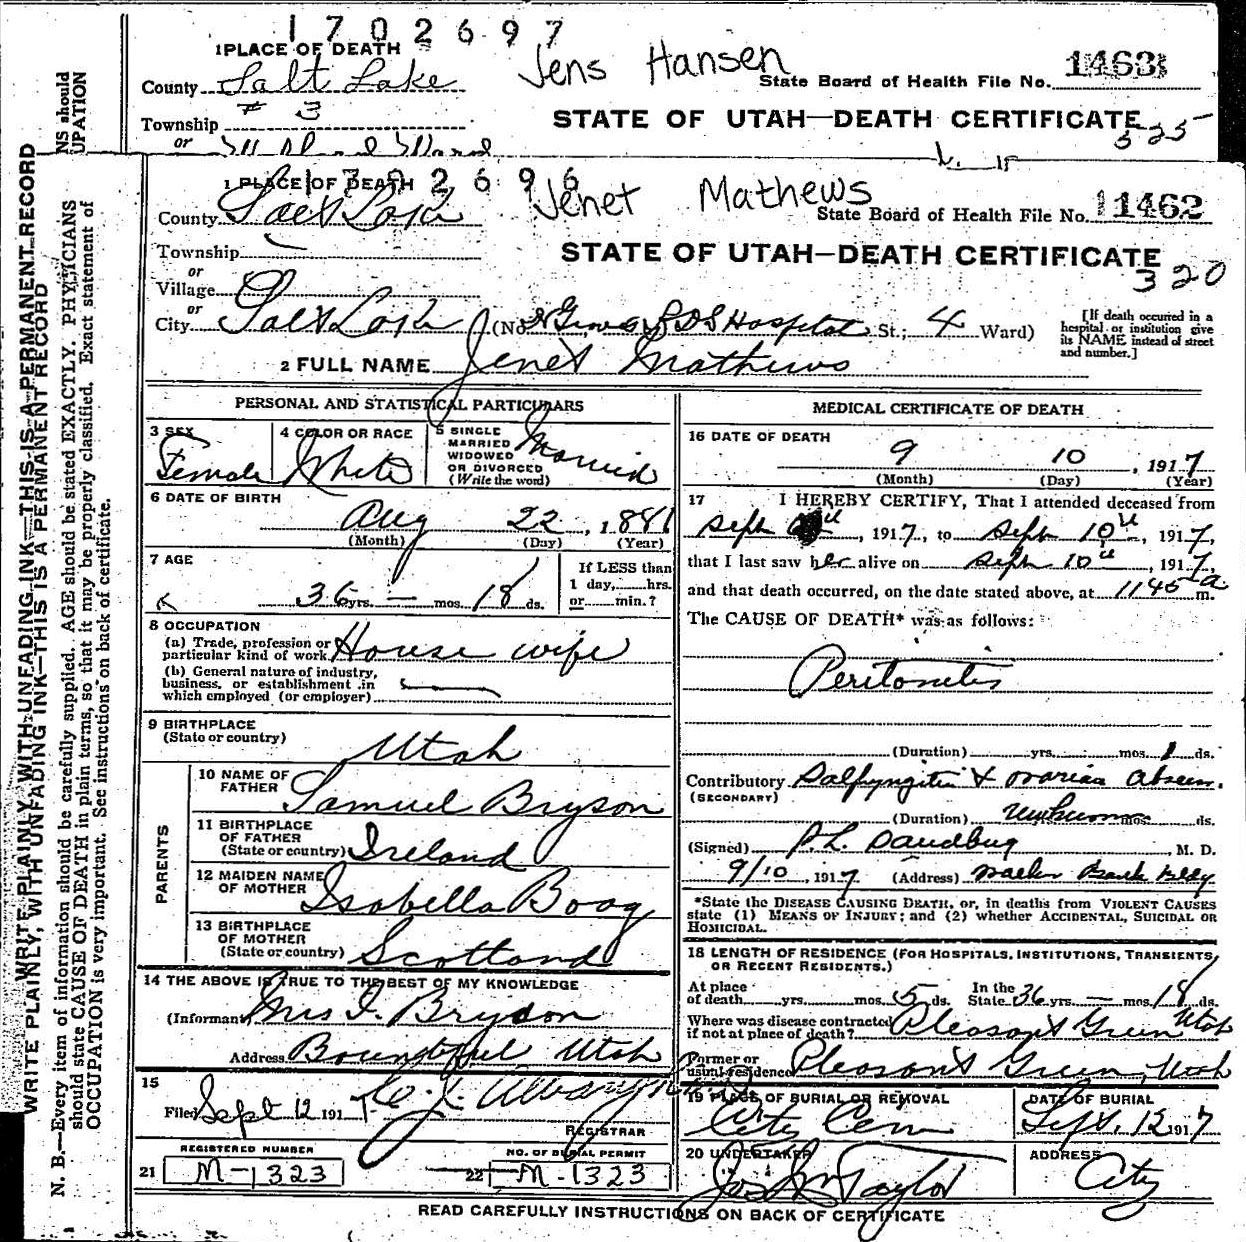 1702697
1 PLACE OF DEATH
Jens Hansen
County Salt Lake
State Board of Health File No. 1463
# 3
Township
STATE OF UTAH—DEATH CERTIFICATE
525
or
NS should
UPATION
1702696
1 PLACE OF DEATH
Jenet Mathews
County Salt Lake
State Board of Health File No. 11462
Township
STATE OF UTAH—DEATH CERTIFICATE
320
or
Village
or
City Salt Lake (No. Groves LDS Hospital St.; 4 Ward)
[If death occurred in a hospital or institution give its NAME instead of street and number.]
2 FULL NAME Jenet Mathews
PERSONAL AND STATISTICAL PARTICULARS
3 SEX Female
4 COLOR OR RACE White
5 SINGLE MARRIED WIDOWED OR DIVORCED (Write the word) Married
6 DATE OF BIRTH
Aug 22, 1881
(Month) (Day) (Year)
7 AGE
36 yrs. — mos. 18 ds.
If LESS than 1 day, hrs. or min.?
8 OCCUPATION
(a) Trade, profession or particular kind of work House wife
(b) General nature of industry, business, or establishment in which employed (or employer)
9 BIRTHPLACE
(State or country) Utah
PARENTS
10 NAME OF FATHER Samuel Bryson
11 BIRTHPLACE OF FATHER (State or country) Ireland
12 MAIDEN NAME OF MOTHER Isabella Boag
13 BIRTHPLACE OF MOTHER (State or country) Scotland
14 THE ABOVE IS TRUE TO THE BEST OF MY KNOWLEDGE
(Informant Mrs I. Bryson
Address Bountiful Utah
15
Filed Sept 12 1917
REGISTRAR
REGISTERED NUMBER
21 M-1323
NO. OF BURIAL PERMIT
22 M-1323
MEDICAL CERTIFICATE OF DEATH
16 DATE OF DEATH
9 10, 1917
(Month) (Day) (Year)
17 I HEREBY CERTIFY, That I attended deceased from
Sept, 1917, to Sept 10th, 1917,
that I last saw her alive on Sept 10th, 1917,
and that death occurred, on the date stated above, at 1145 a m.
The CAUSE OF DEATH* was as follows:
Peritonitis
(Duration) yrs. mos. 1 ds.
Contributory Salpyngitis & ovarian absess.
(SECONDARY)
(Duration) unknown mos. ds.
(Signed), M. D.
9/10, 1917 (Address) Walker Bank Bldg
*State the DISEASE CAUSING DEATH, or, in deaths from VIOLENT CAUSES state (1) MEANS OF INJURY; and (2) whether ACCIDENTAL, SUICIDAL OR HOMICIDAL.
18 LENGTH OF RESIDENCE (FOR HOSPITALS, INSTITUTIONS, TRANSIENTS, OR RECENT RESIDENTS.)
At place of death yrs. mos. 5 ds. In the State 36 yrs. — mos. 18 ds.
Where was disease contracted if not at place of death? Pleasant Green Utah
Former or usual residence Pleasant Green, Utah
19 PLACE OF BURIAL OR REMOVAL City Cem
DATE OF BURIAL Sept. 12 1917
20 UNDERTAKER Jos Wm Taylor
ADDRESS City
READ CAREFULLY INSTRUCTIONS ON BACK OF CERTIFICATE
WRITE PLAINLY WITH UNFADING INK—THIS IS A PERMANENT RECORD
WRITE PLAINLY, WITH UNFADING INK—THIS IS A PERMANENT RECORD
N. B.—Every item of information should be carefully supplied. AGE should be stated EXACTLY. PHYSICIANS
should state CAUSE OF DEATH in plain terms, so that it may be properly classified. Exact statement of
OCCUPATION is very important. See instructions on back of certificate.